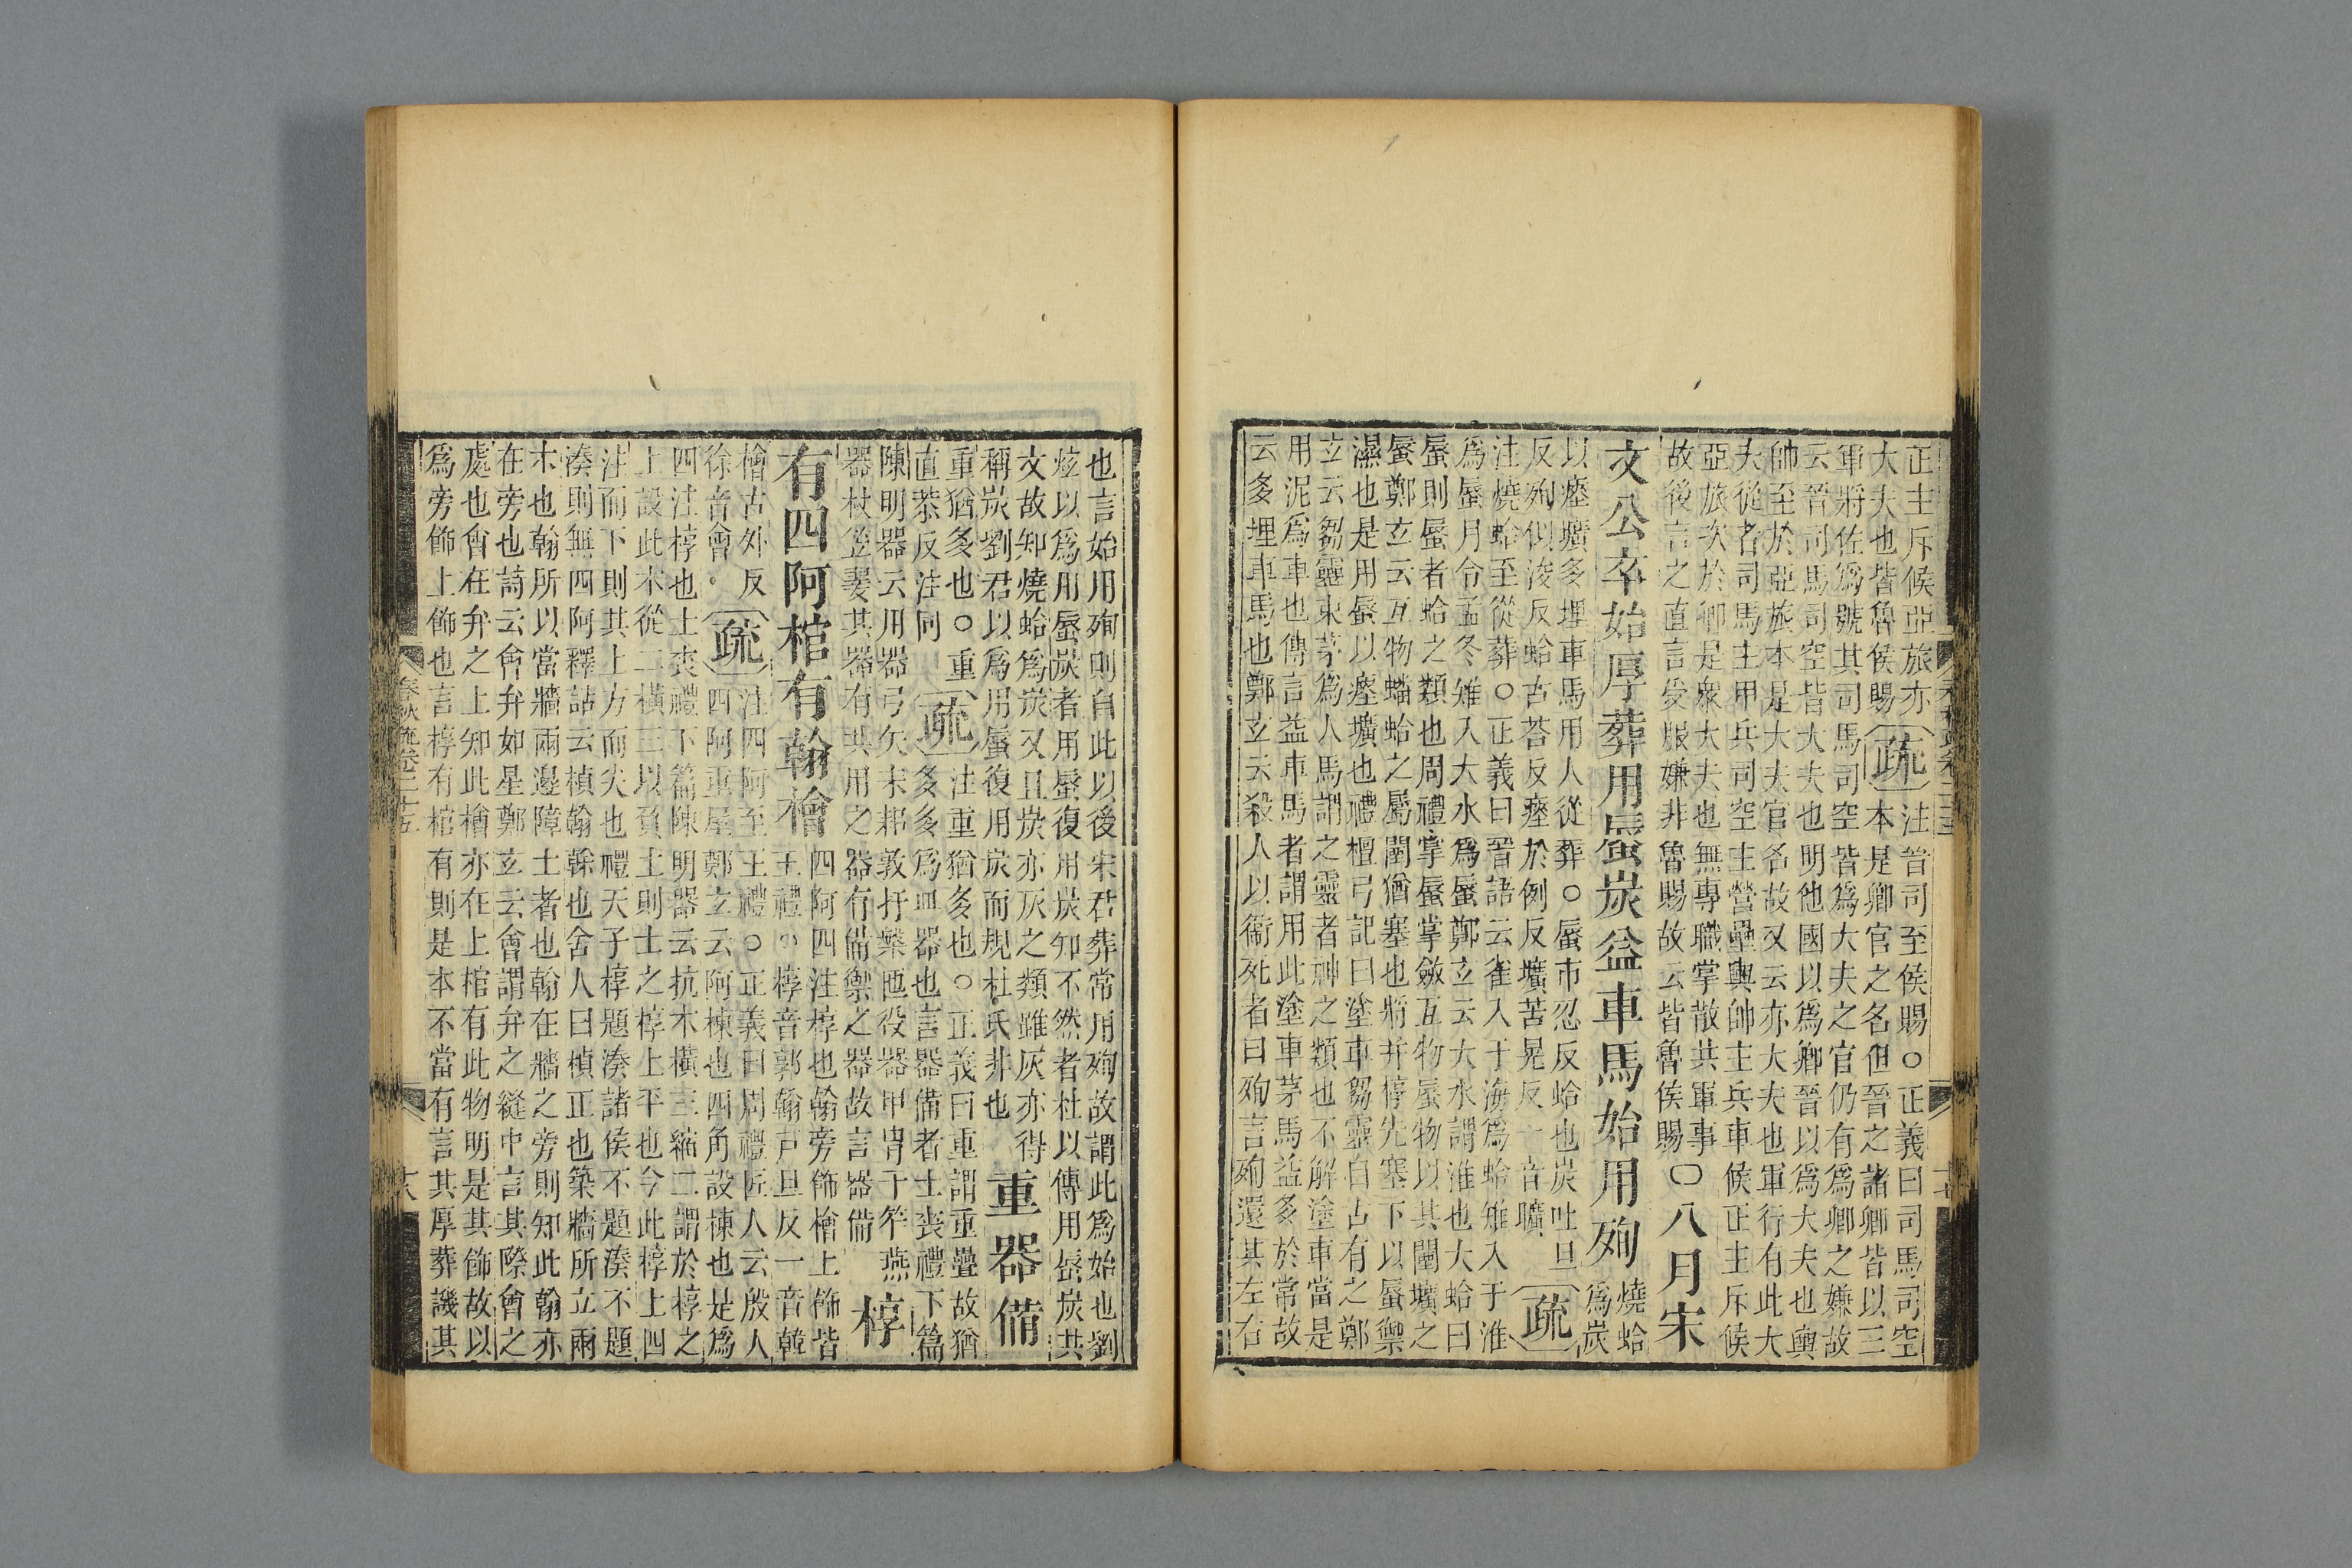 正主斥候亞旅亦
大夫也皆魯侯賜
疏
注晉司至侯賜○正義曰司馬司空
本是卿官之名但晉之諸卿皆以三
軍將佐爲號其司馬司空皆爲大夫之官仍有爲卿之嫌故
云晉司馬司空皆大夫也明他國以爲卿晉以爲大夫也輿
帥至於亞旅本是大夫官名故又云亦大夫也軍行有此大
夫從者司馬主甲兵司空主營壘輿帥主兵車候正主斥候
亞旅次於卿是衆大夫也無專職掌散共軍事
故後言之直言受服嫌非魯賜故云皆魯侯賜
○八月宋
文公卒始厚葬用蜃炭益車馬始用殉
燒蛤
爲炭
以瘞壙多埋車馬用人從葬○蜃市忍反蛤也炭吐旦
反殉似浚反蛤古荅反瘞於例反壙苦晃反一音曠
疏
注燒蛤至從葬○正義曰晉語云雀入于海爲蛤雉入于淮
爲蜃月令孟冬雉入大水爲蜃鄭玄云大水謂淮也大蛤曰
蜃則蜃者蛤之類也周禮掌蜃掌斂互物蜃物以共闉壙之
蜃鄭玄云互物蟠蛤之屬闉猶塞也將井椁先塞下以蜃禦
濕也是用蜃以瘞壙也禮檀弓記曰塗車芻靈自古有之鄭
玄云芻靈束茅爲人馬謂之靈者神之類也不解塗車當是
用泥爲車也傳言益車馬者謂用此塗車茅馬益多於常故
云多埋車馬也鄭玄云殺人以衞死者曰殉言殉還其左右
也言始用殉則自此以後宋君葬常用殉故謂此爲始也劉
炫以爲用蜃炭者用蜃復用炭知不然者杜以傳用蜃炭共
文故知燒蛤爲炭又且炭亦灰之類雖灰亦得
稱炭劉君以爲用蜃復用炭而規杜氏非也
重器備
重猶多也○重
直恭反注同
疏
注重猶多也○正義曰重謂重疊故猶
多多爲皿器也言器備者士喪禮下篇
陳明器云用器弓矢耒耜敦杅槃匜役器甲冑干笮燕
器杖笠翣其器有共用之器有備禦之器故言器備
椁
有四阿棺有翰檜
四阿四注椁也翰旁飾檜上飾皆
王禮○椁音郭翰戸旦反一音韓
檜古外反
徐音會○
疏
注四阿至王禮○正義曰周禮匠人云殷人
四阿重屋鄭玄云阿棟也四角設棟也是爲
四注椁也士喪禮下篇陳明器云抗木橫三縮二謂於椁之
上設此木從二橫三以負土則士之椁上平也今此椁上四
注而下則其上方而尖也禮天子椁題湊諸侯不題湊不題
湊則無四阿釋詁云楨翰榦也舍人曰楨正也築牆所立兩
木也翰所以當牆兩邊障土者也翰在牆之旁則知此翰亦
在旁也詩云會弁如星鄭玄云會謂弁之縫中言其際會之
處也會在弁之上知此檜亦在上棺有此物明是其飾故以
爲旁飾上飾也言椁有棺有則是本不當有言其厚葬譏其
春秋疏卷二十五
十八